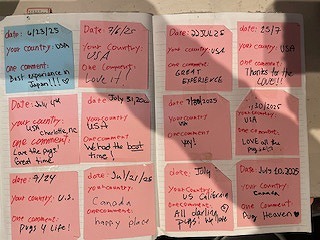 date: 6/23/25
your country: USA
one comment:
Best experience in
Japan!!!
Date: 7/6/25
Your Country:
USA
One Comment:
Love it!
date: July 4th
your country:
USA
Charlotte, NC
one comment:
Love the pugs!
Great time
date July 31, 20
your country:
USA
One comment
We had the best
time!
date: 9/24
Your Country: U.S.
One Comment:
Pugs 4 Life!
date: Jul/21/25
your country:
Canada
one comment:
happy place
Date: 22JUL25
your country: USA
One Comment:
GREAT
EXPERIENCE
date: 25/7
your country:
USA
One Comment:
Thanks for the
LOVE!!
date:
your country:
USA
one comment
yay!
/30/2025
your country:
USA
one comment:
LOVE all the
date: July
Your Country:
US California
One Comment:
All darling
pugs! We love
date: July 10, 2025
Your Country:
Canada
One Comment:
Pug Heaven